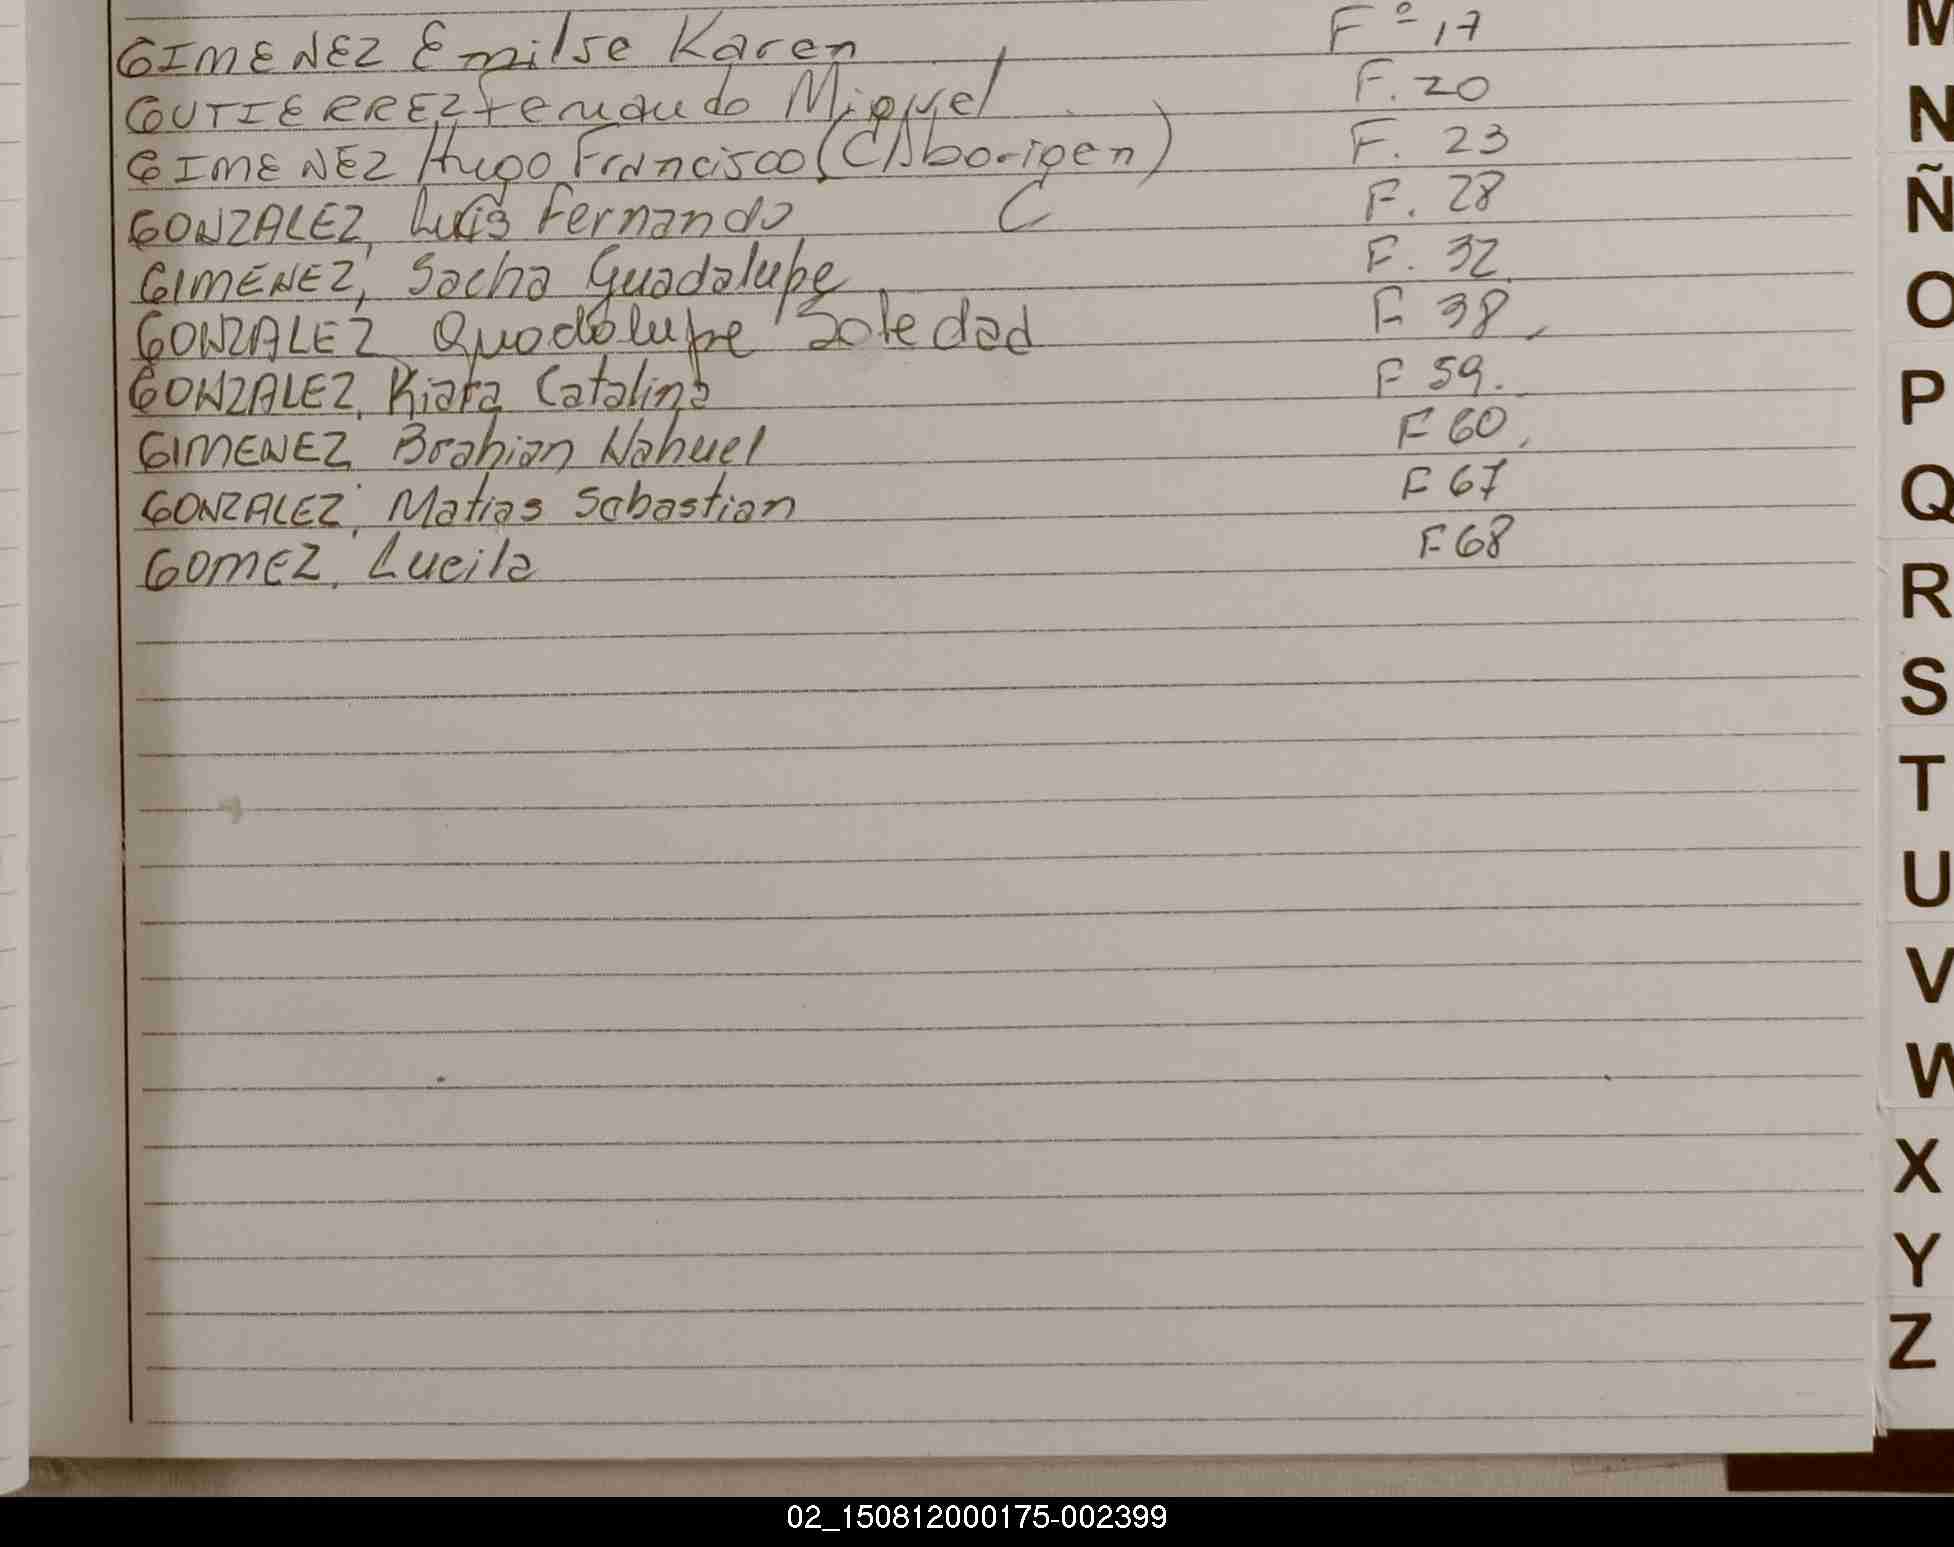 GIMENEZ Emilse Karen Fº 17
GUTIERREZ Fernando Miguel F. 20
GIMENEZ Hugo Francisco (C/Aborigen) F. 23
GONZALEZ, Luis Fernando C F. 28
GIMENEZ, Sacha Guadalupe F. 32
GONZALEZ Guadalupe Soledad F 38
GONZALEZ, Kiara Catalina F 59.
GIMENEZ, Brahian Nahuel F 60
GONZALEZ, Matias Sebastian F 67
GOMEZ, Lucila F 68
M
N
Ñ
O
P
Q
R
S
T
U
V
W
X
Y
Z
02_150812000175-002399